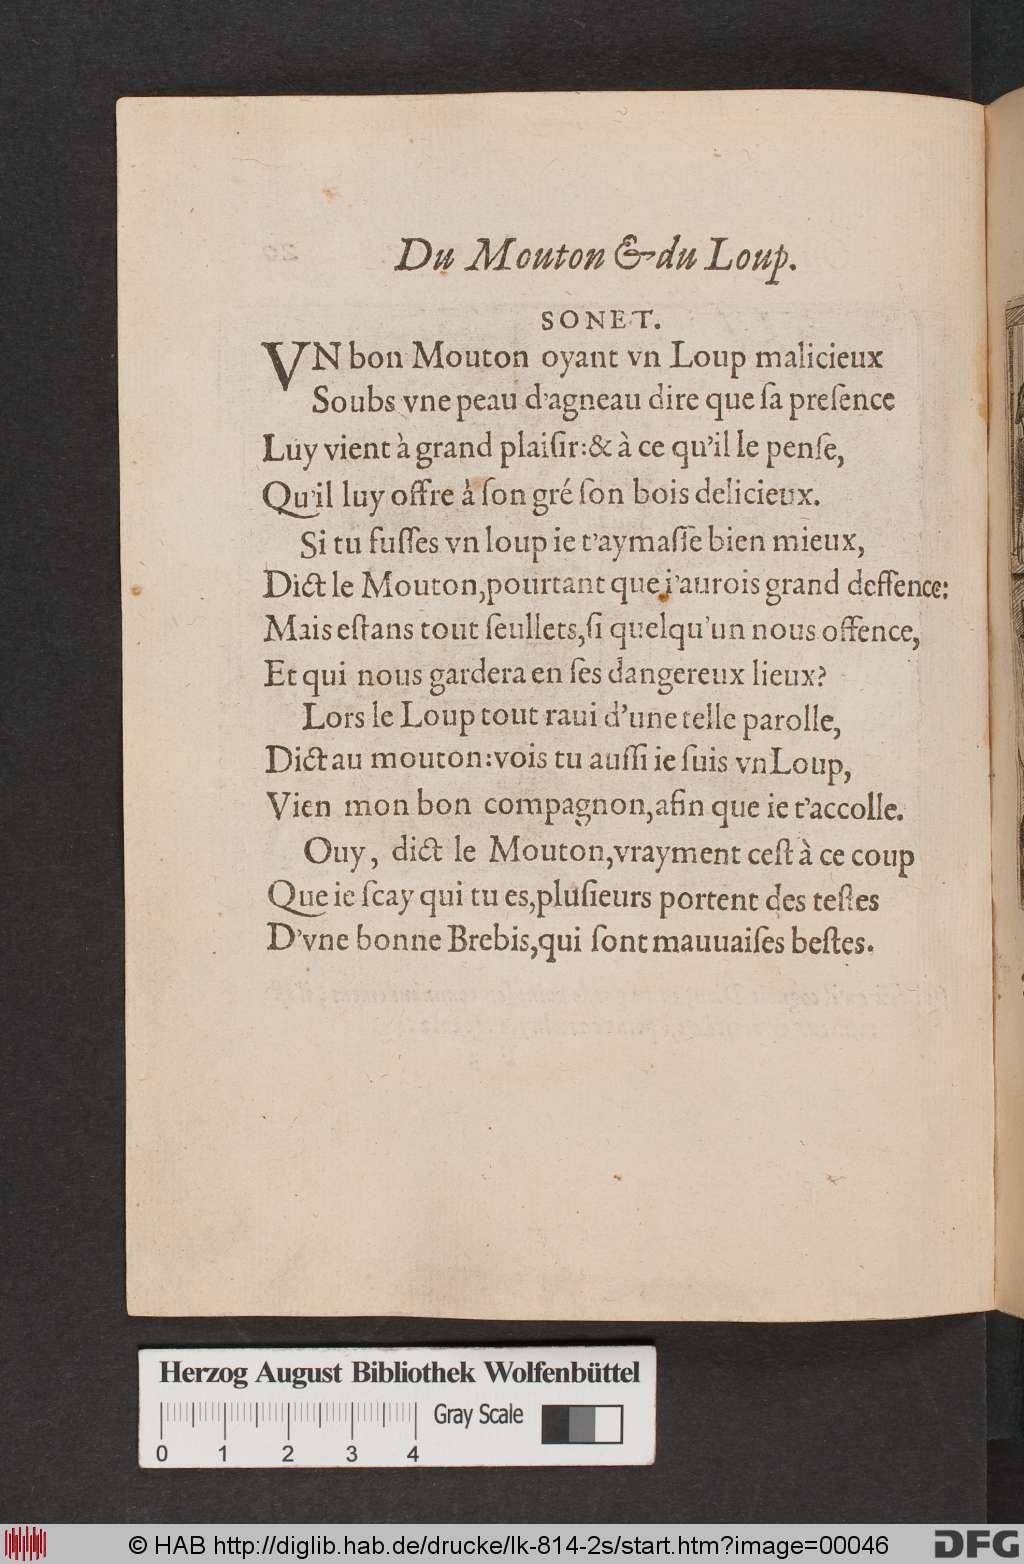 Du Mouton & du Loup.
SONET.
VN bon Mouton oyant vn Loup malicieux
Soubs vne peau d'agneau dire que ſa preſence
Luy vient à grand plaiſir:& à ce qu'il le penſe,
Qu'il luy offre à ſon gré ſon bois delicieux.
Si tu fuſſes vn loup ie t'aymaſſe bien mieux,
Dict le Mouton,pourtant que i'aurois grand deffence:
Mais eſtans tout ſeullets,ſi quelqu'un nous offence,
Et qui nous gardera en ſes dangereux lieux?
Lors le Loup tout raui d'une telle parolle,
Dict au mouton:vois tu auſſi ie ſuis vn Loup,
Vien mon bon compagnon,afin que ie t'accolle.
Ouy, dict le Mouton,vrayment ceſt à ce coup
Que ie ſcay qui tu es,pluſieurs portent des teſtes
D'vne bonne Brebis,qui ſont mauuaiſes beſtes.
Herzog August Bibliothek Wolfenbüttel
Gray Scale
0 1 2 3 4
© HAB http://diglib.hab.de/drucke/lk-814-2s/start.htm?image=00046
DFG